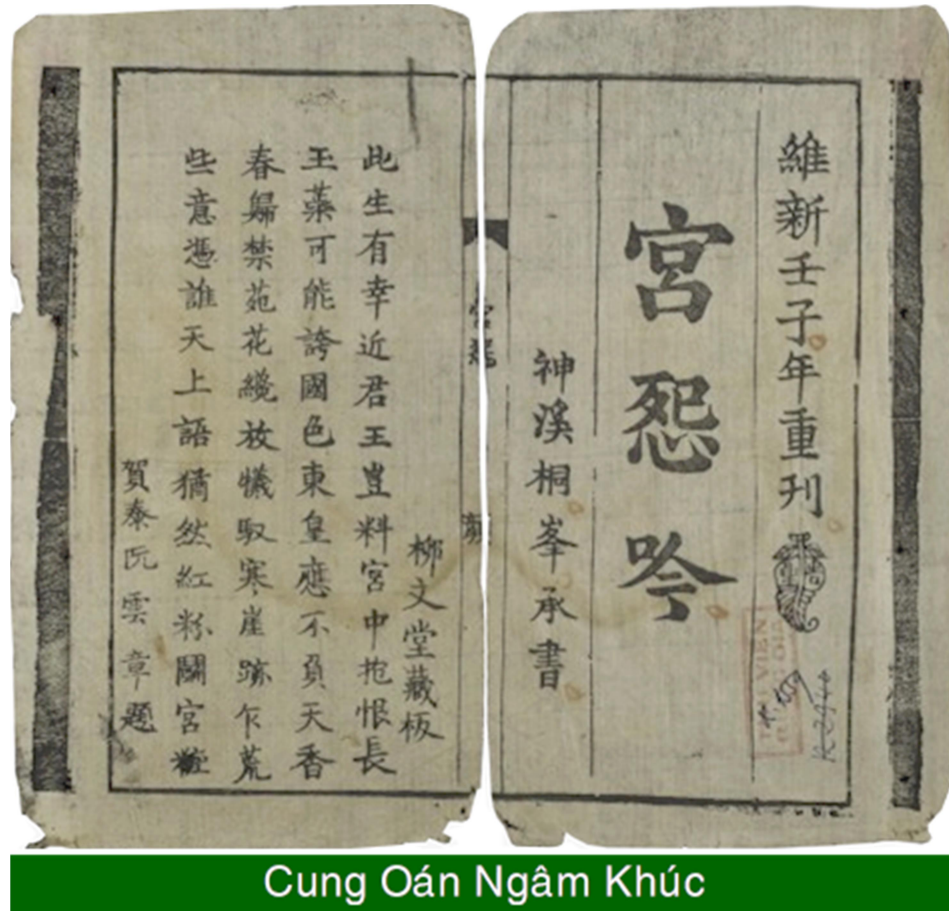 維新壬子年重刊
宮怨吟
神溪桐峯承書
柳文堂藏板
此生有幸近君王豈料宮中抱恨長
玉藥可能誇國色東皇應不負天香
春歸禁苑花纔放犧馭寒崖跡乍荒
些意憑誰天上語猶然紅粉鬭宮粧
賀泰阮雲章題
Cung Oán Ngâm Khúc